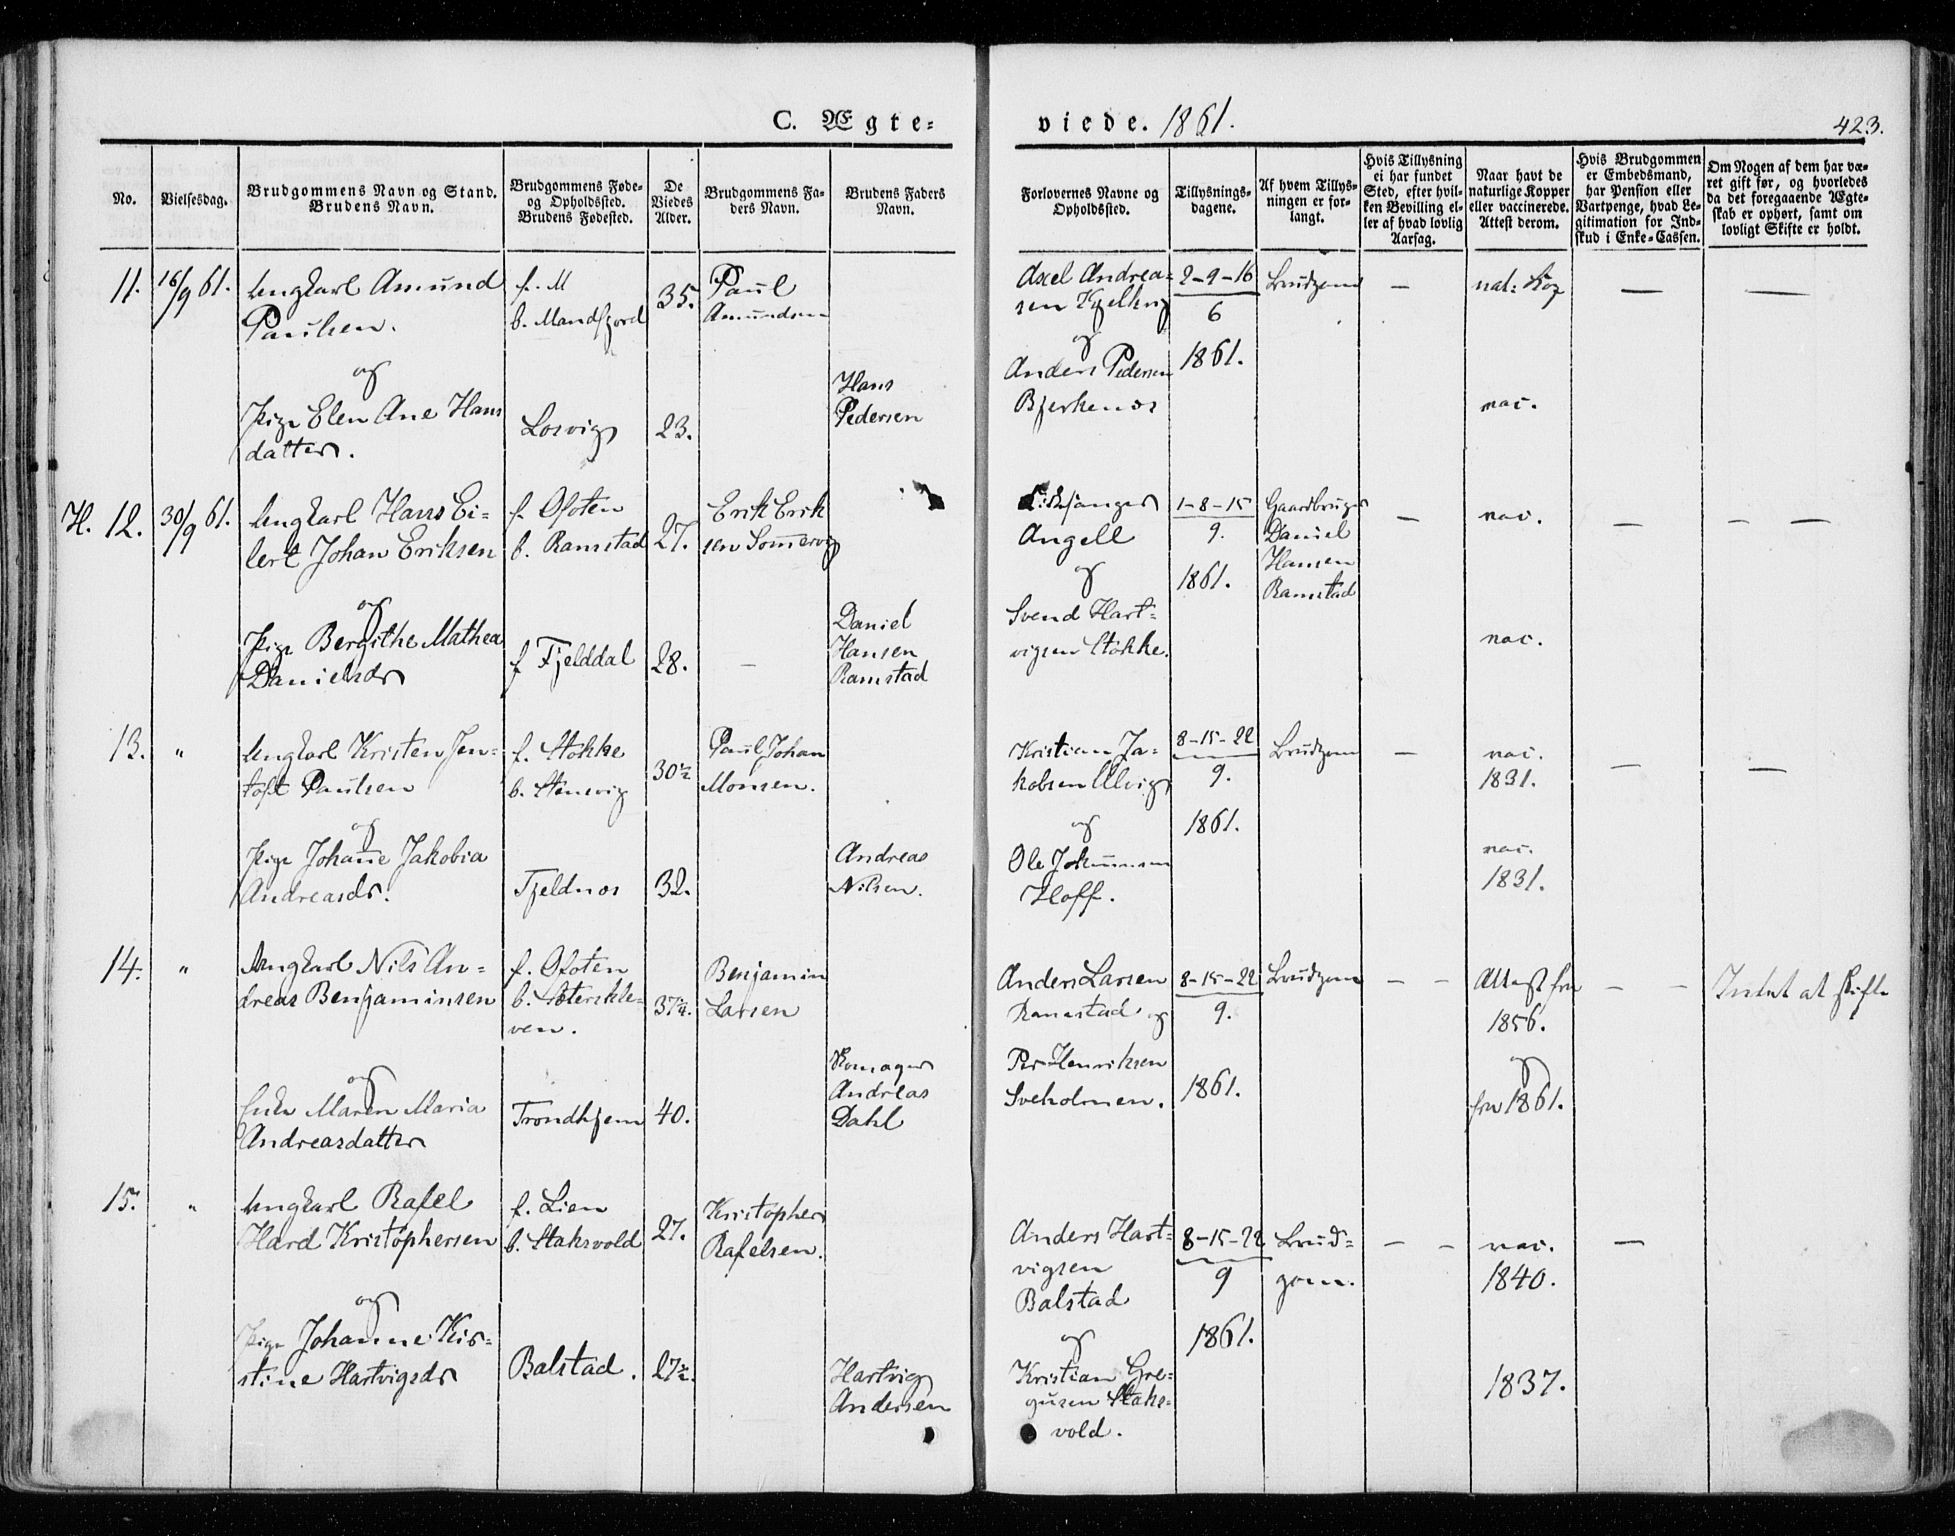 C. Ægte-
viede. 1861.
423.
No.
Vielsesdag.
Brudgommens Navn og Stand.
Brudens Navn.
Brudgommens Føde-
og Opholdssted.
Brudens Fødested.
De
Viedes
Alder.
Brudgommens Fa-
ders Navn.
Brudens Faders
Navn.
Forlovernes Navne og
Opholdssted.
Tillysnings-
dagene.
Af hvem Tillys-
ningen er for-
langt.
Hvis Tillysning
ei har fundet
Sted, efter hvil-
ken Bevilling el-
ler af hvad lovlig
Aarsag.
Naar havt de
naturlige Kopper
eller vaccinerede.
Attest derom.
Hvis Brudgommen
er Embedsmand,
har Pension eller
Vartpenge, hvad Le-
gitimation for Ind-
skud i Enke-Cassen.
Om Nogen af dem har væ-
ret gift før, og hvorledes
da det foregaaende Ægte-
skab er ophørt, samt om
lovligt Skifte er holdt.
11.
16/9 61.
Ungkarl Amund
Paulsen.
og
Pige Elen Ane Hans
datter.
f. M
b. Mandfjord
Losvig
35.
23.
Paul
Amundsen
Hans
Pedersen
Axel Andrea-
sen Kjelling
og
Anders Pedersen
Bjerkenæs
2-9-16
6
1861.
Brudgom
—
nat: Kop
vac.
—
—
H. 12.
30/9 61.
Ungkarl Hans Ei-
lert Johan Eriksen
og
Pige Bergithe Mathea
Danielsdr
f. Ofoten
b. Ramstad
f Fjelddal
27.
28.
Erik Erik
sen Somervig
—
Daniel
Hansen
Ramstad
Angell
og
Svend Hart-
vigsen Stokke.
1-8-15
9.
1861.
Gaardbruger
Daniel
Hansen
Ramstad
—
vac.
vac.
—
— —
13.
"
Ungkarl Kristen Jen-
toft Paulsen
og
Pige Johane Jakobia
Andreasdr.
f. Stokke
b. Stensvig
Fjeldnæs
30½
32.
Paul Johan
Monsen.
Andreas
Nilsen.
Kristian Ja-
kobsen Ulvig
og
Ole Johannesen
Hoff.
8-15-22
9.
1861.
Brudgom
—
vac.
1831.
vac.
1831.
—
—
14.
"
Ungkarl Nils An-
dreas Benjaminsen
og
Enke Maren Maria
Andreasdatter
f. Ofoten
b. Sæterskle-
ven.
Trondhjem
37½.
40.
Benjamin
Larsen
Andreas
Dahl
Anders Larsen
Ramstad og
Per Henriksen
Sveholmen.
8-15-22
9.
1861.
Brudgom
— —
Attest fra
1856.
og
fra 1861.
— —
Intet at skifte
15.
"
Ungkarl Rafel
Hard Kristophersen
og
Pige Johanne Kir-
stine Hartvigsdr
f. Lien
b. Staksvold
Balstad.
27.
27½.
Kristopher
Rafelsen.
Hartvig
Andersen
Anders Hart-
vigsen
Balstad
og
Kristian Gre-
gusen Staks-
vold.
8-15-22
9
1861.
Brud-
gom.
— —
vac.
1840.
1837.
—